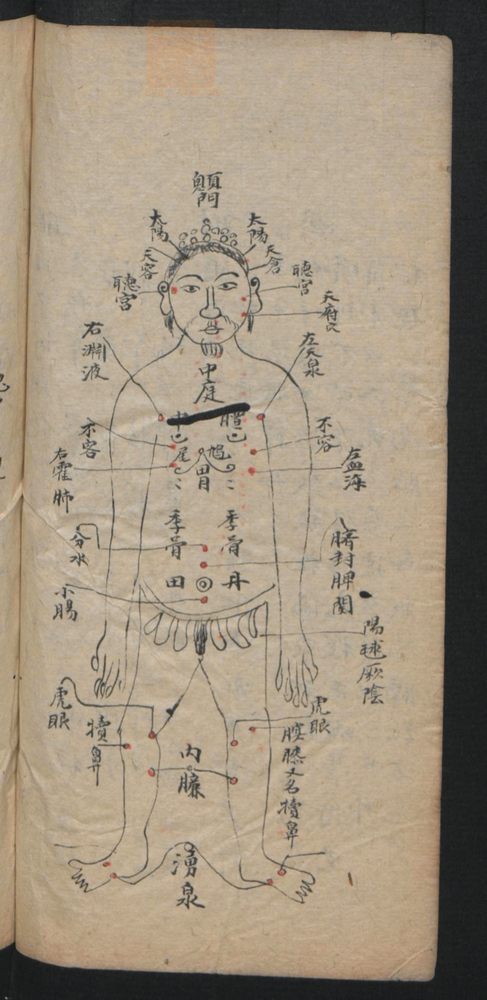 顖門
太陽
太陽
天容
天倉
聽宮
聽宮
天府穴
右淵液
左天泉
中庭
鳩尾
胃
不容
不容
右藿肺
左血海
季骨
季骨
分水
臍封脾関
田
丹
小腸
陽毬厥陰
虎眼
虎眼
犢鼻
膝又名犢鼻
内臁
湧泉